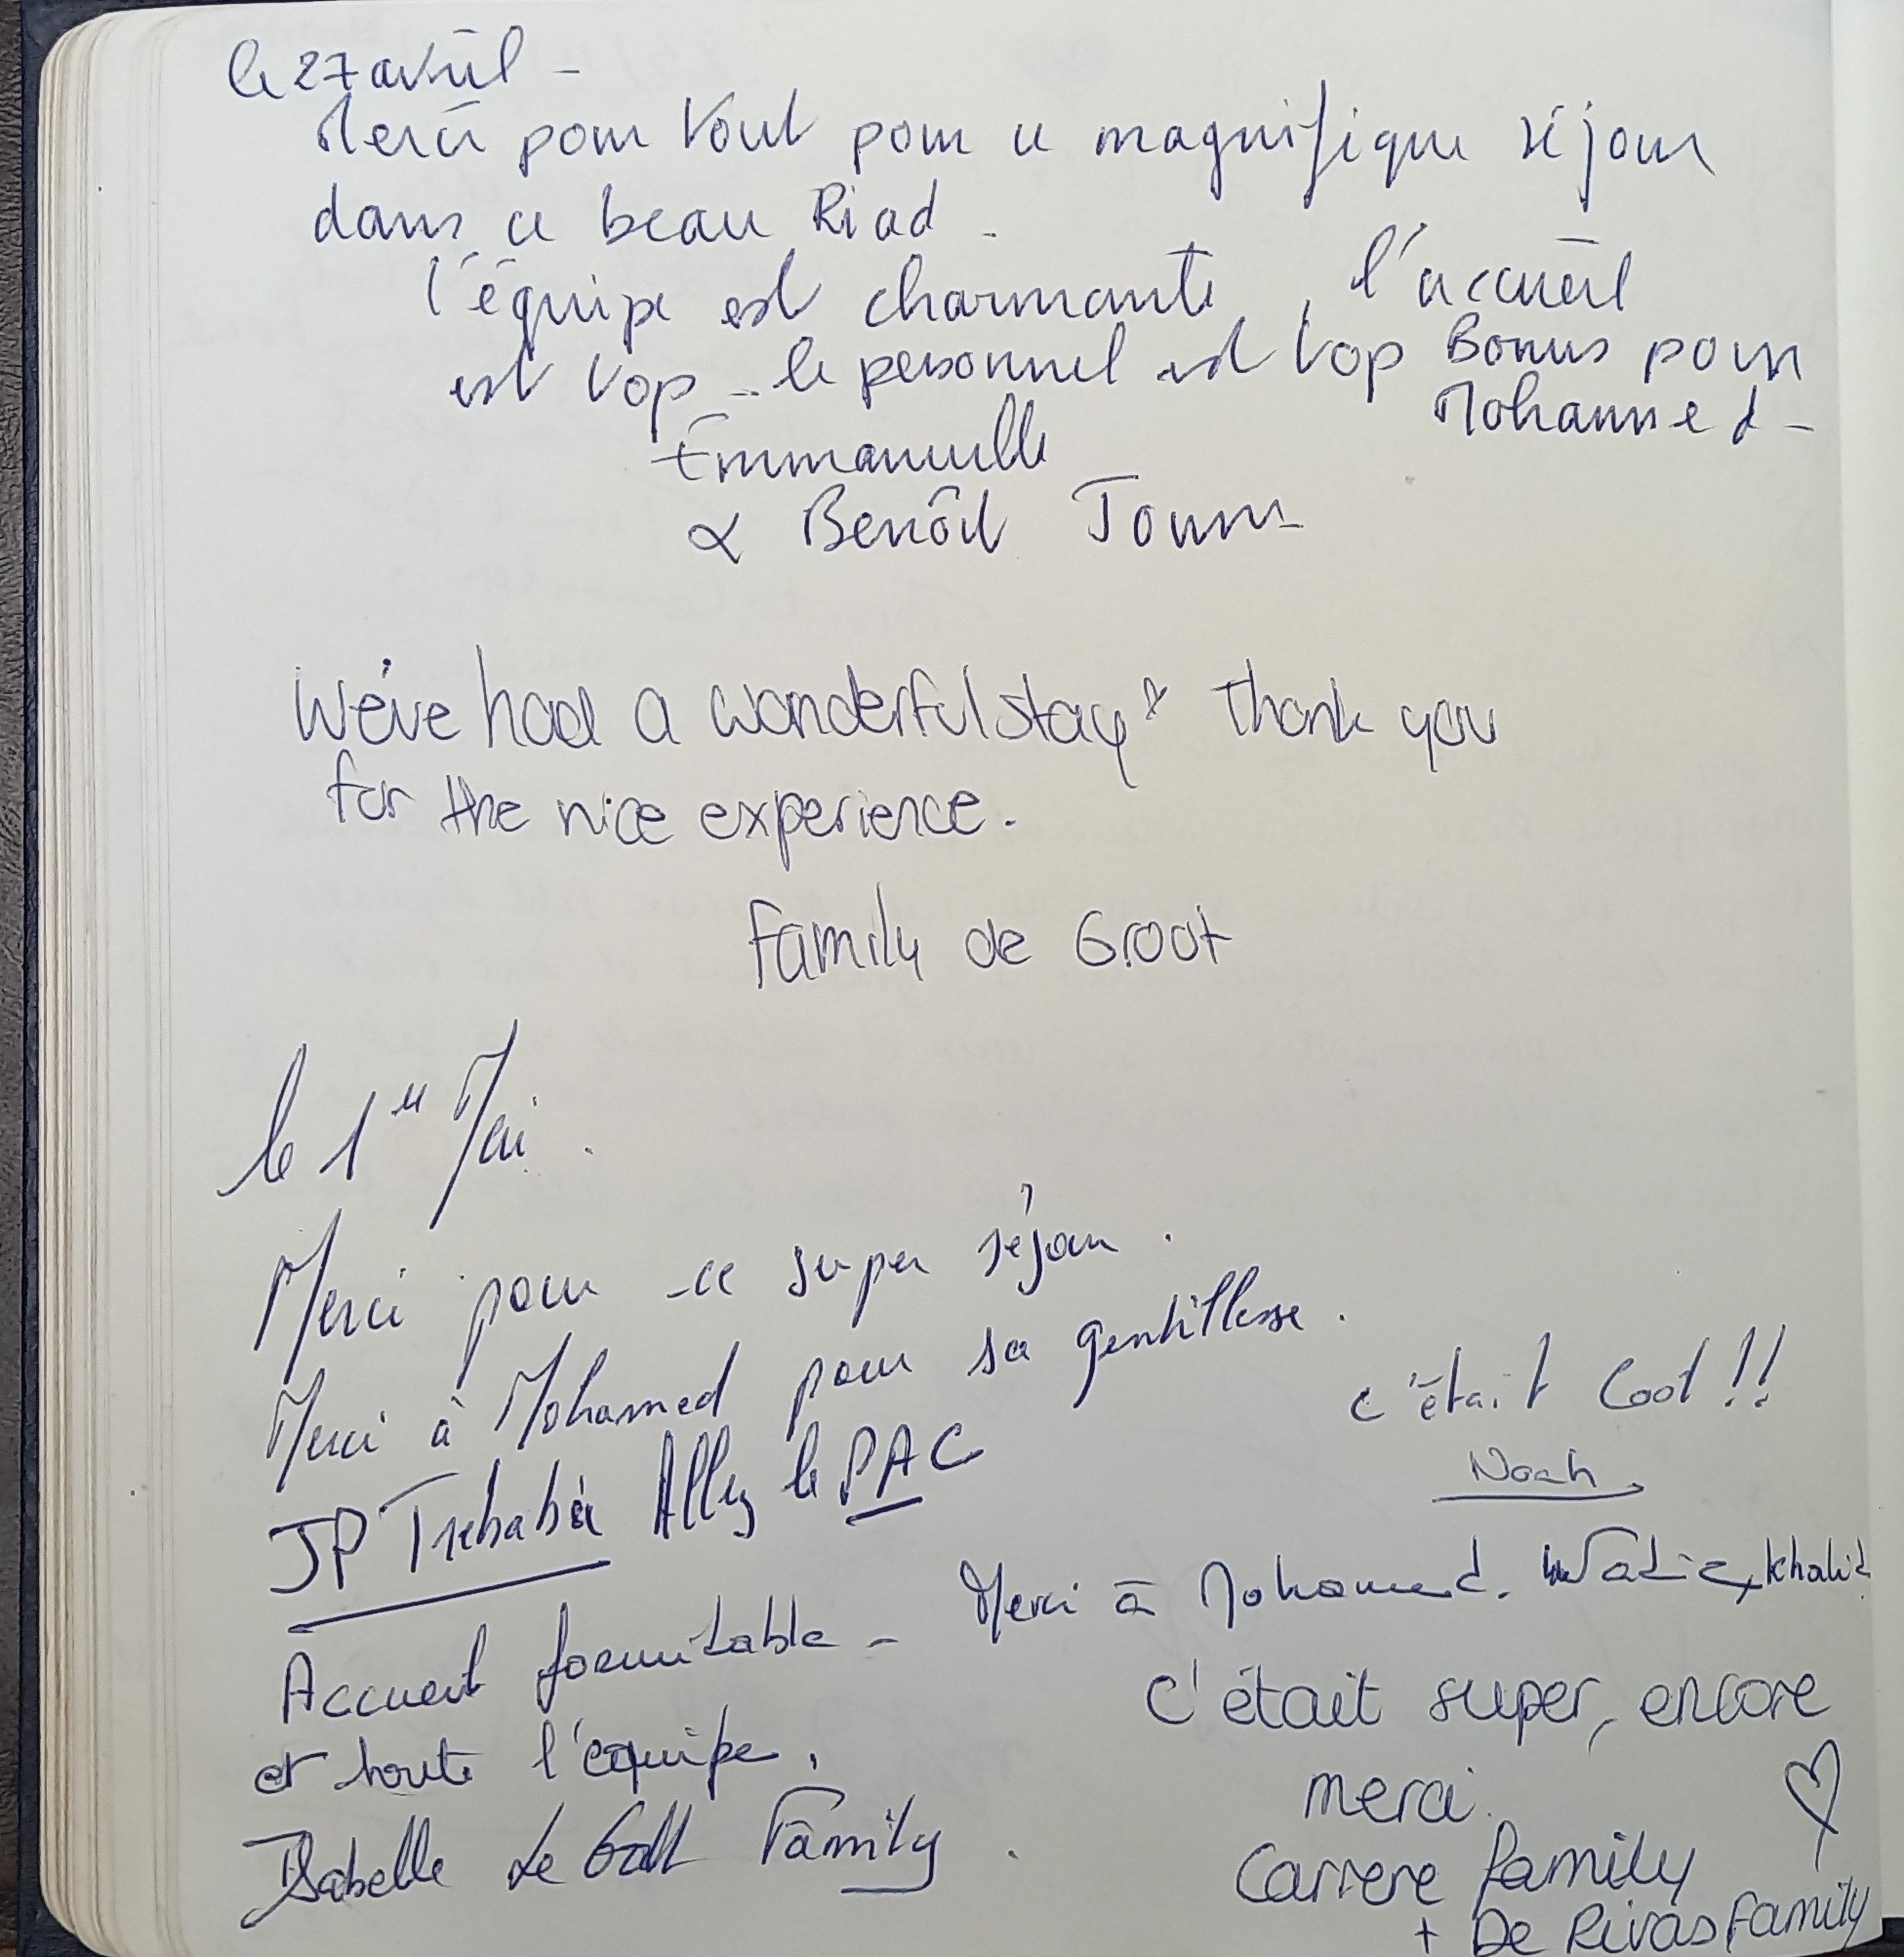 le 27 avril -
Merci pour tout pour ce magnifique séjour
dans ce beau Riad -
l'équipe est charmante, l'accueil
est top - le personnel est top Bonus pour
Mohammed -
Emmanuelle
& Benoît
We've had a wonderful stay & thank you
for the nice experience.
Family de Groot
le 1er Mai.
Merci pour ce super séjour.
Merci à Mohamed pour sa gentillesse.
JP Allez le PAC
c'était Cool!!
Noah
Accueil formidable - Merci à Mohamed, Khalid
et toute l'équipe.
Isabelle Le Gall Family.
C'était super, encore
merci.
Carrere family
+ De Rivas family